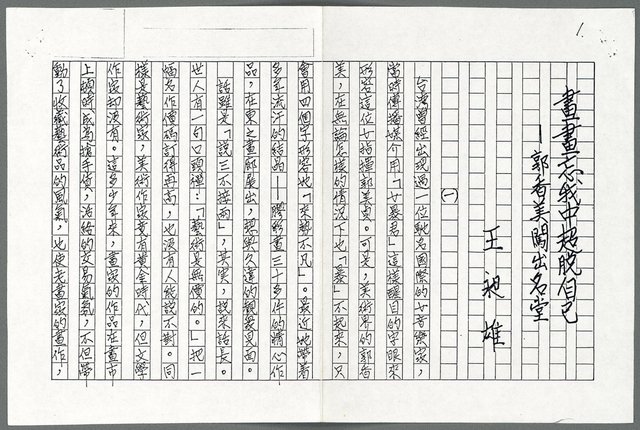 1.
畫畫忘我中超脫自己
——郭香美闖出名堂
王昶雄
(一)
台灣曾經出現過一位馳名國際的女音樂家,
當時傳播媒介用「女暴君」這樣醒目的字眼來
形容這位女指揮郭美貞。可是,美術界的郭香
美,在無論怎樣的情況下也「暴」不起來,只
會用四個字形容她「柔勢不凡」。最近她帶著
多年流汗的結晶——膠彩畫三十多件的精心作
品,在東之畫廊展出,想與久違的觀眾見面。
話雖是「說三不接兩」,其實,說來話長。
世人有一句口頭禪:「藝術是無價的。」把一
幅名作價碼訂得再高,也沒有人能說不對。同
樣是藝術家,美術作家竟有黃金時代,但文學
作家却沒有。這多少年來,畫家的作品在畫市
上頓時成為搶手貨,活絡的交易氣氛,不但帶
動了收藏藝術品的風氣,也使老畫家的畫作,